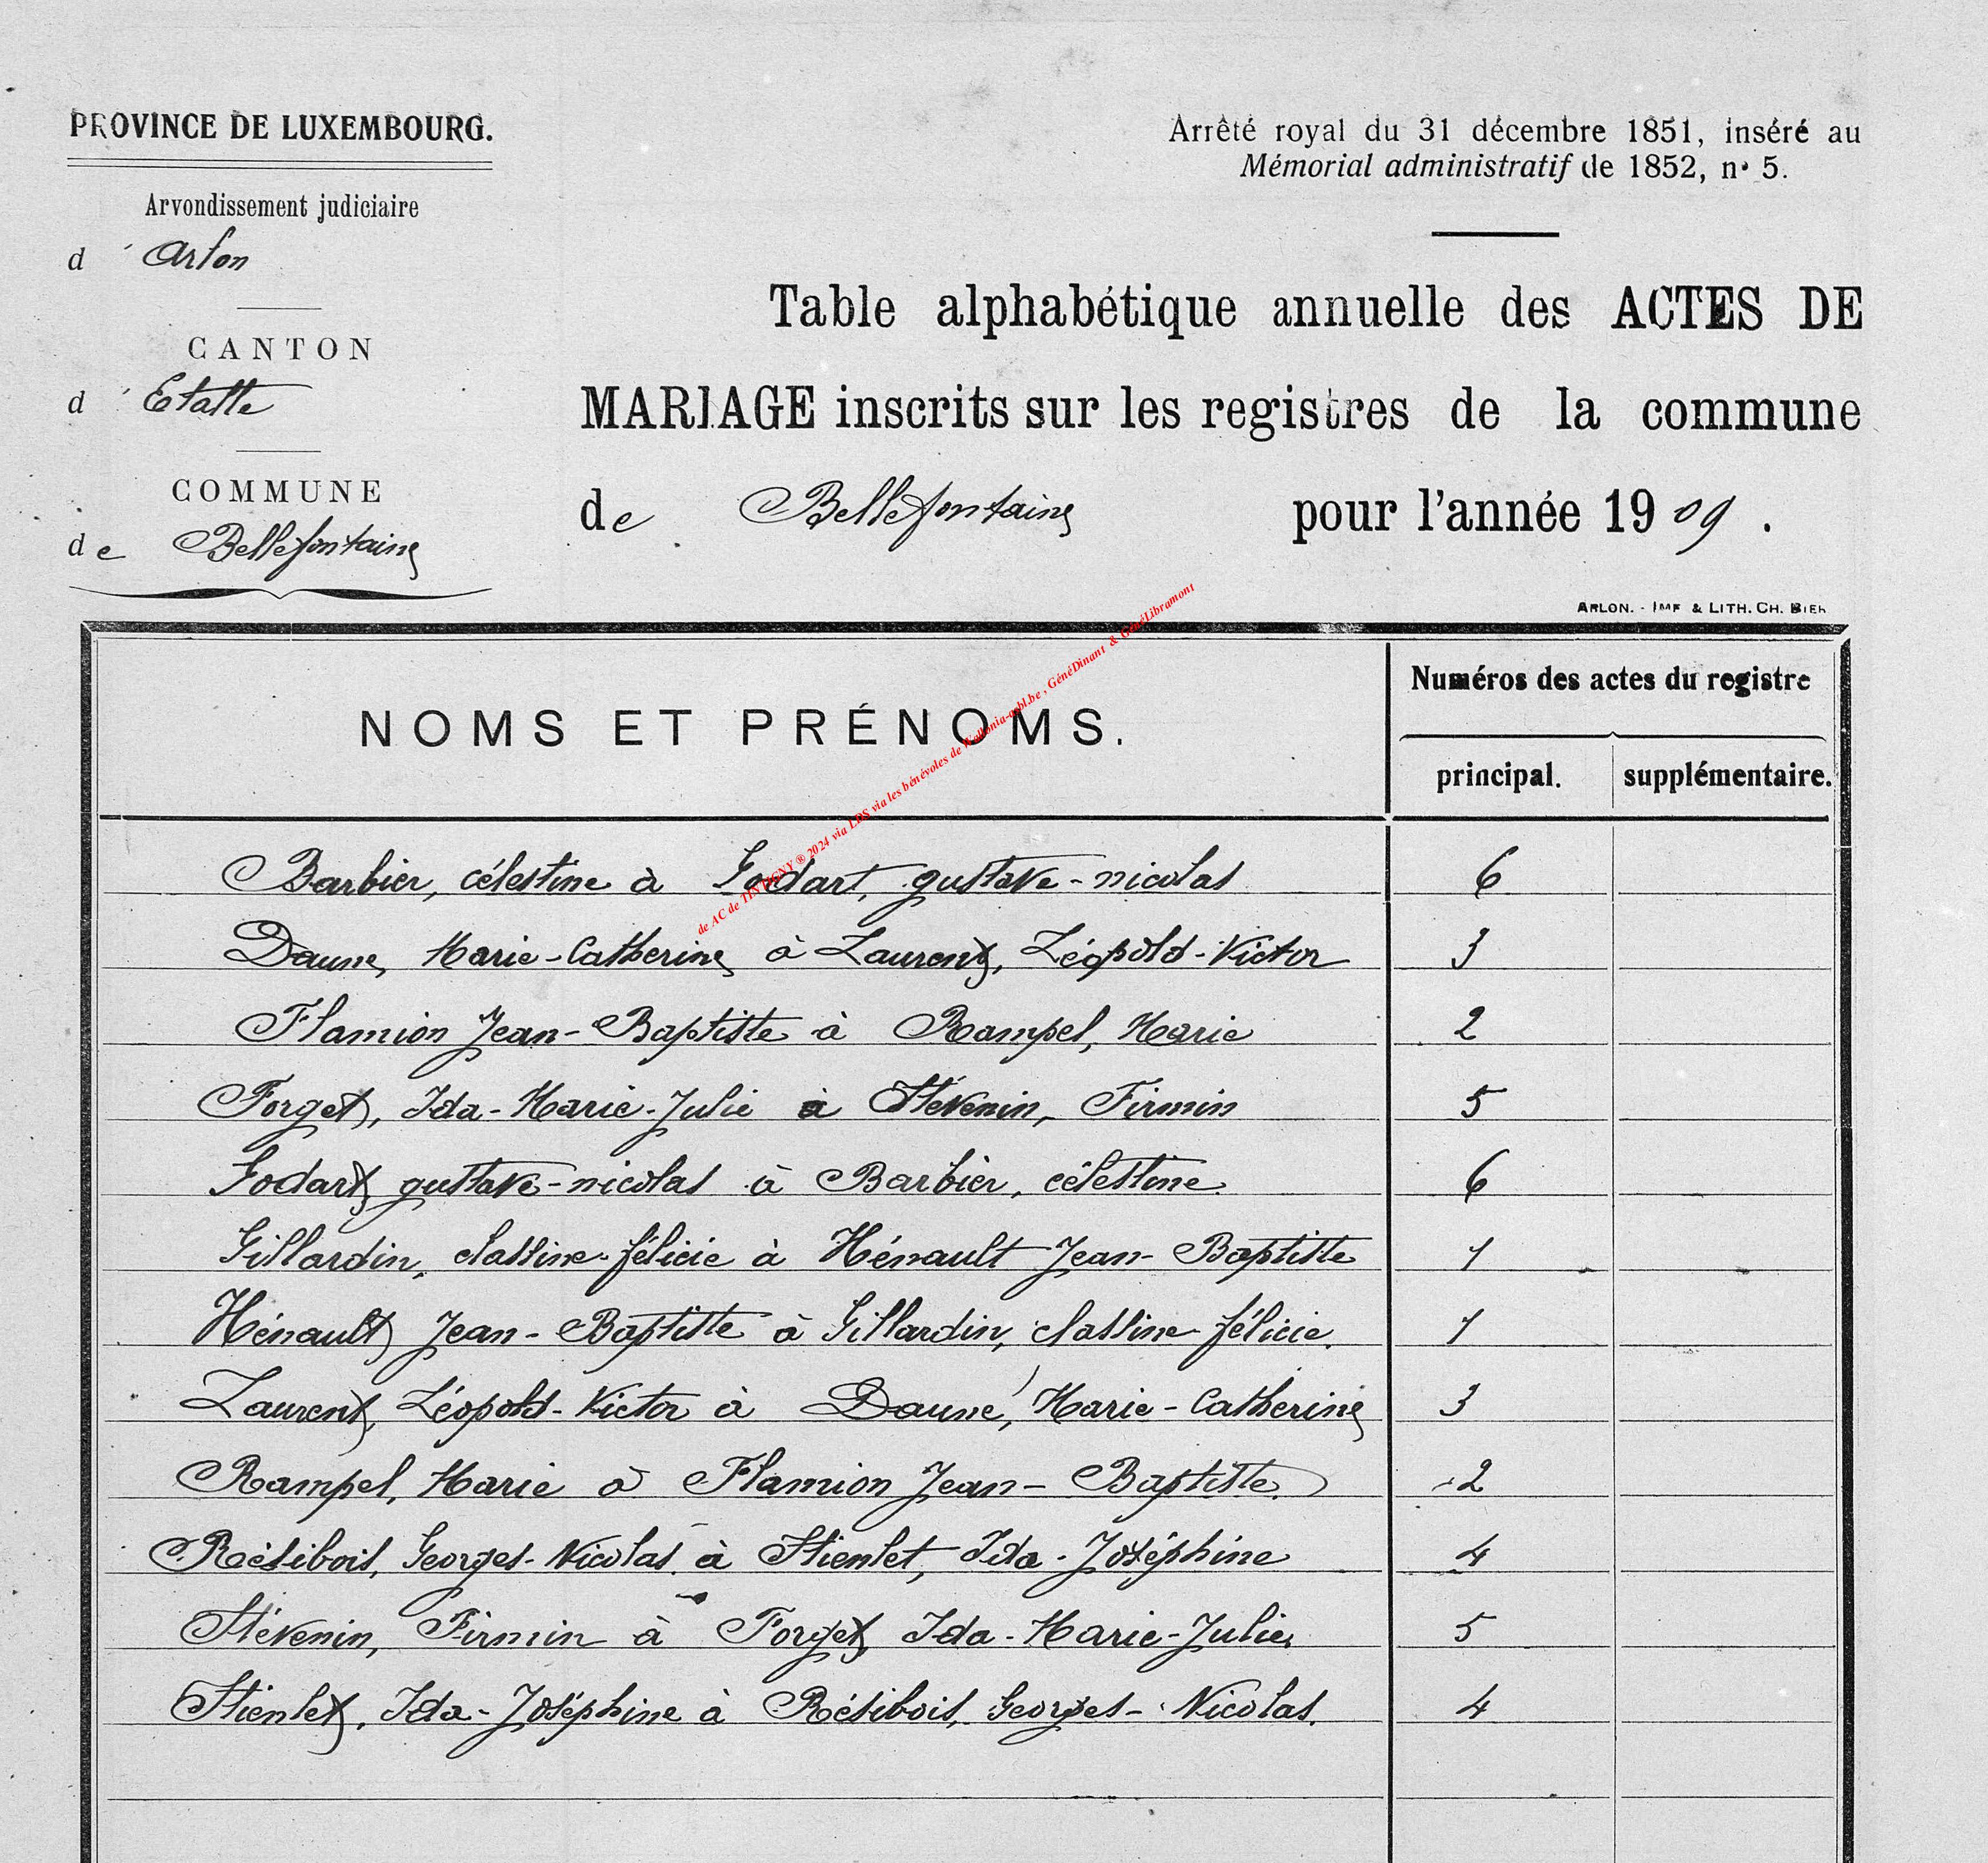 PROVINCE DE LUXEMBOURG.
Arrondissement judiciaire
d'Arlon
CANTON
d'Etalle
COMMUNE
de Bellefontaine
Arrêté royal du 31 décembre 1851, inséré au
Mémorial administratif de 1852, n° 5.
Table alphabétique annuelle des ACTES DE
MARIAGE inscrits sur les registres de la commune
de Bellefontaine pour l'année 1909.
ARLON. - IMP. & LITH. CH. BIER
NOMS ET PRÉNOMS.
Numéros des actes du registre
principal. supplémentaire.
de AC de TINTIGNY ® 2024 via LDS via les bénévoles de Wallonia-asbl.be , GénéDinant & GénéLibramont
Barbier, célestine à Godart, gustave-nicolas 6
Daune, Marie-Catherine à Laurent, Léopold-Victor 3
Flamion Jean-Baptiste à Rampel, Marie 2
Forget, Ida-Marie-Julie à Stévenin, Firmin 5
Godart, gustave-nicolas à Barbier, célestine 6
Gillardin, félicie à Hénault Jean-Baptiste 1
Hénault, Jean-Baptiste à Gillardin, félicie. 1
Laurent, Léopold-Victor à Daune, Marie-Catherine 3
Rampel, Marie à Flamion Jean-Baptiste. 2
Résibois, Georges-Nicolas. à Stienlet, Ida-Joséphine 4
Stévenin, Firmin à Forget, Ida-Marie-Julie, 5
Stienlet, Ida-Joséphine à Résibois, Georges-Nicolas. 4